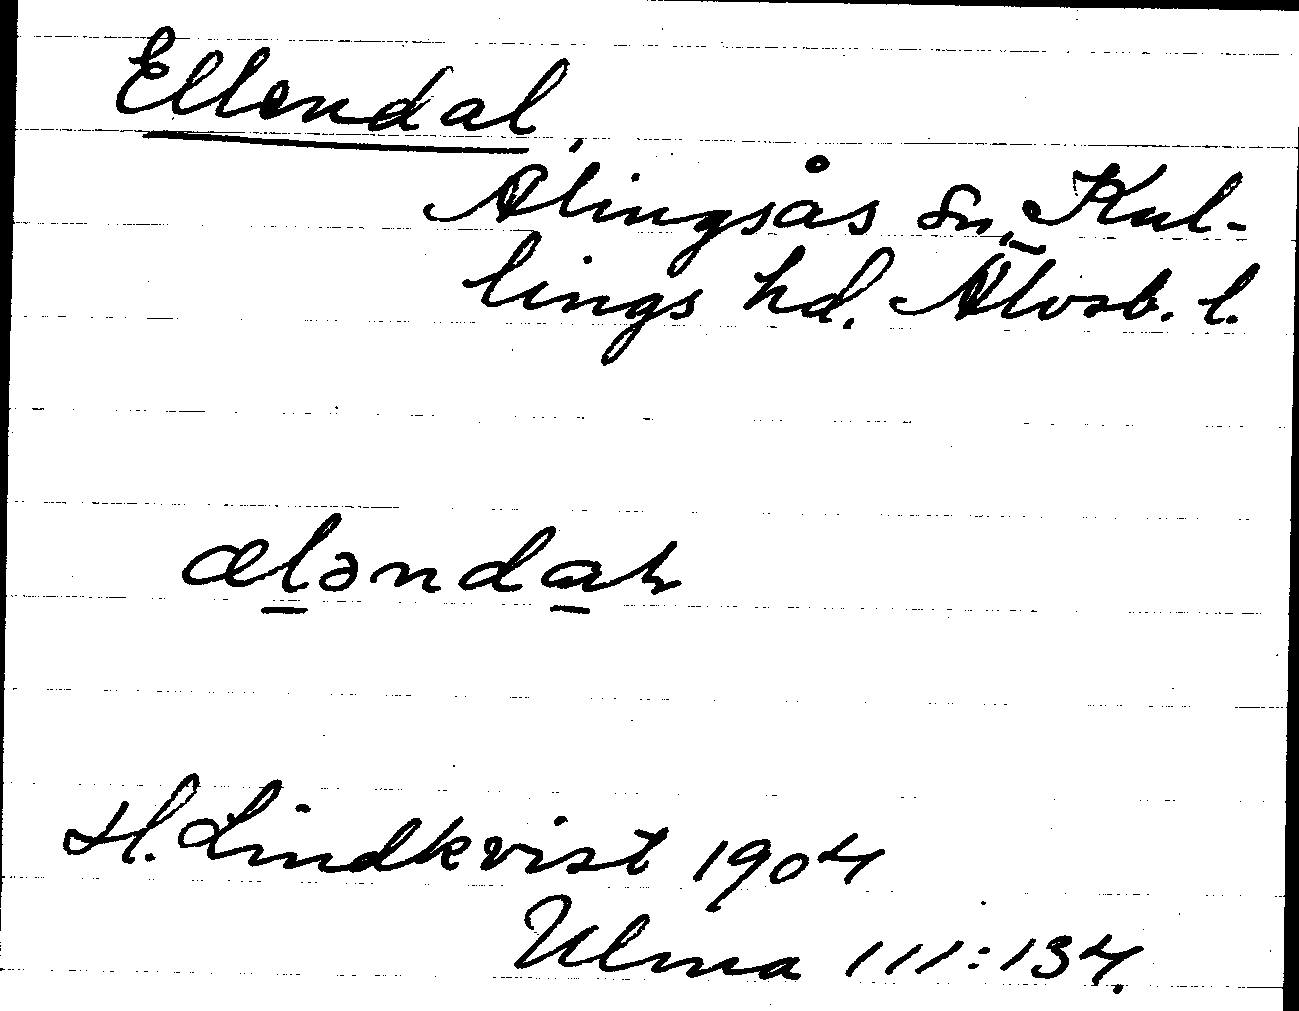 Ellendal,
Alingsås sn, Kul-
lings hd. Älvsb. l.
æl̲ənda̲ɫ
H. Lindkvist 1904
Ulma 111:134.